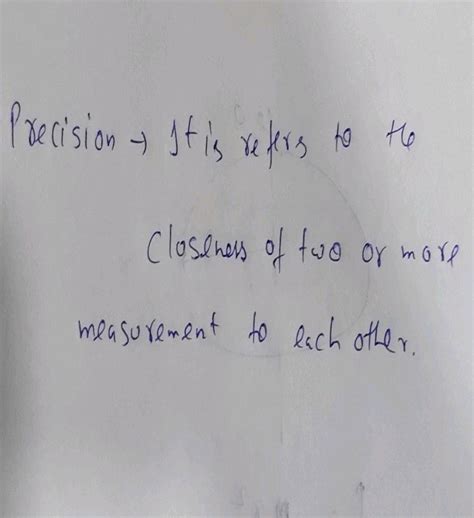 Precision → It is refers to the
Closeness of two or more
measurement to each other.